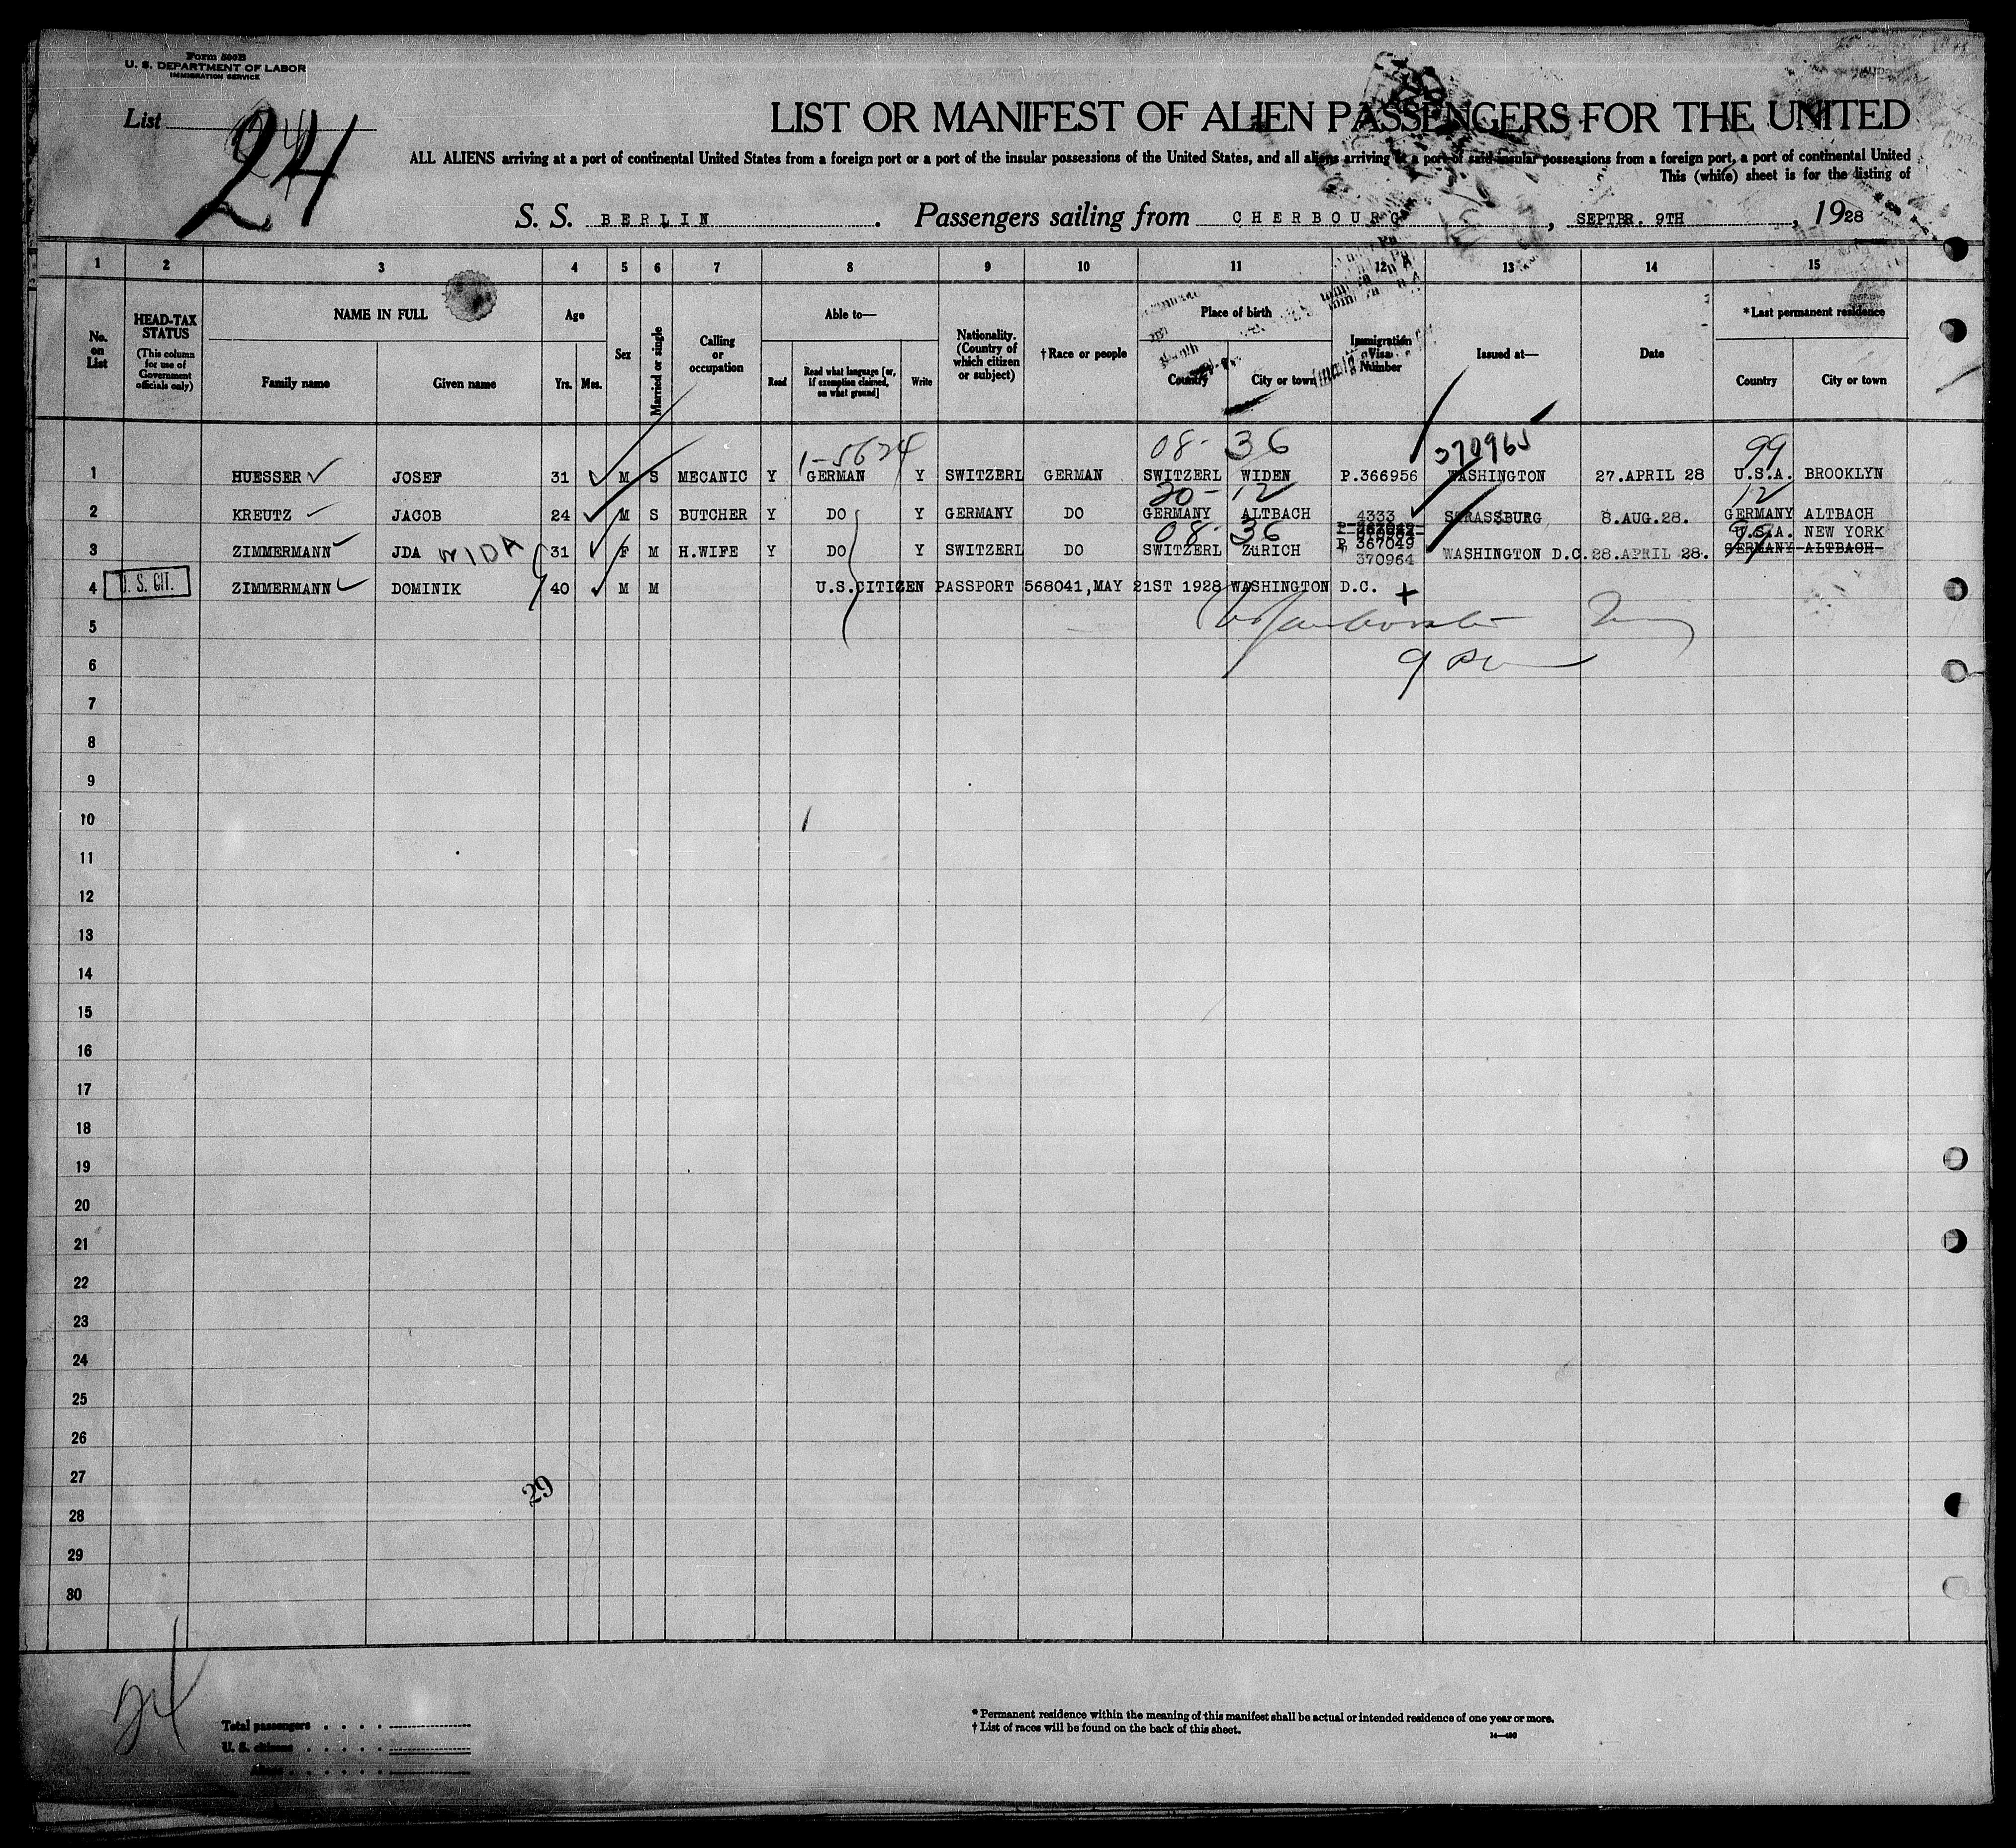 Form 500B
U. S. DEPARTMENT OF LABOR
IMMIGRATION SERVICE
List 24
LIST OR MANIFEST OF ALIEN PASSENGERS FOR THE UNITED
ALL ALIENS arriving at a port of continental United States from a foreign port or a port of the insular possessions of the United States, and all aliens arriving at a port of said insular possessions from a foreign port, a port of continental United
This (white) sheet is for the listing of
S. S. BERLIN. Passengers sailing from CHERBOURG, SEPTBR. 9TH, 1928
1 2 3 4 5 6 7 8 9 10 11 12 13 14 15
No. on List
HEAD-TAX STATUS
(This column for use of Government officials only)
NAME IN FULL
Family name
Given name
Age
Yrs. Mos.
Sex
Married or single
Calling or occupation
Able to—
Read
Read what language [or, if exemption claimed, on what ground]
Write
Nationality. (Country of which citizen or subject)
†Race or people
Place of birth
Country
City or town
Immigration Visa Number
Issued at—
Date
*Last permanent residence
Country
City or town
1-5624 08- 36 370965 99
1 HUESSER JOSEF 31 M S MECANIC Y GERMAN Y SWITZERL GERMAN SWITZERL WIDEN P.366956 WASHINGTON 27.APRIL 28 U.S.A. BROOKLYN
20- 12 12
2 KREUTZ JACOB 24 M S BUTCHER Y DO Y GERMANY DO GERMANY ALTBACH 4333 STRASSBURG 8.AUG.28. GERMANY ALTBACH
08- 36 U.S.A. NEW YORK
3 ZIMMERMANN JDA WIDA 31 F M H.WIFE Y DO Y SWITZERL DO SWITZERL ZüRICH P 367049 WASHINGTON D.C. 28.APRIL 28. GERMANY ALTBACH
370964
4 U. S. CIT. ZIMMERMANN DOMINIK 40 M M U.S.CITIZEN PASSPORT 568041,MAY 21ST 1928 WASHINGTON D.C. +
5
6
7
8
9
10
11
12
13
14
15
16
17
18
19
20
21
22
23
24
25
26
27
29
28
29
30
24
Total passengers . . . .
U. S. citizens . . . . .
Aliens . . . . . .
* Permanent residence within the meaning of this manifest shall be actual or intended residence of one year or more.
† List of races will be found on the back of this sheet.